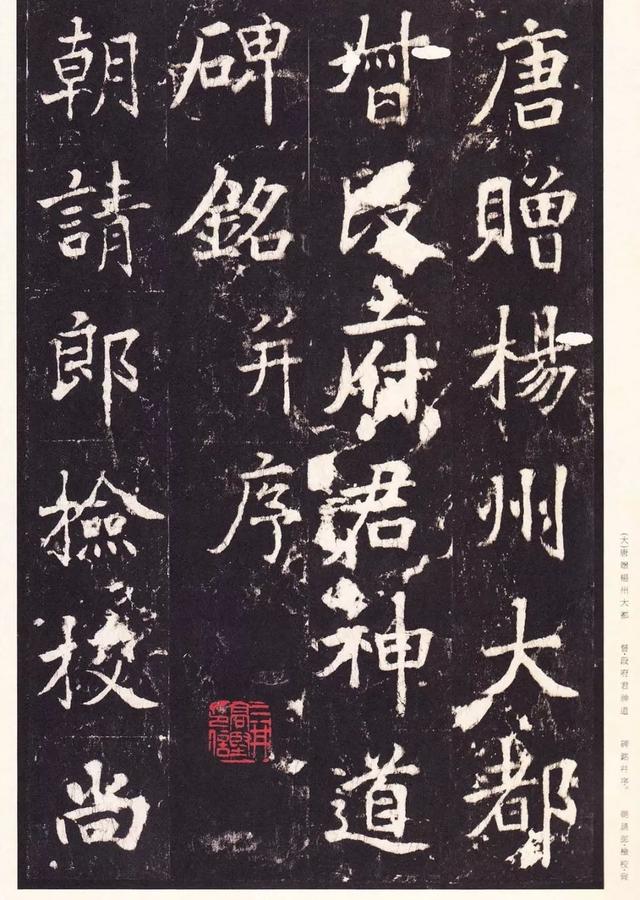 唐贈楊州大都
督段府君神道
碑銘并序
三井高堅印信
朝請郎檢校尚
(大)唐贈楊州大都 督·段府君神道 碑銘并序。 朝請郎·檢校·尚